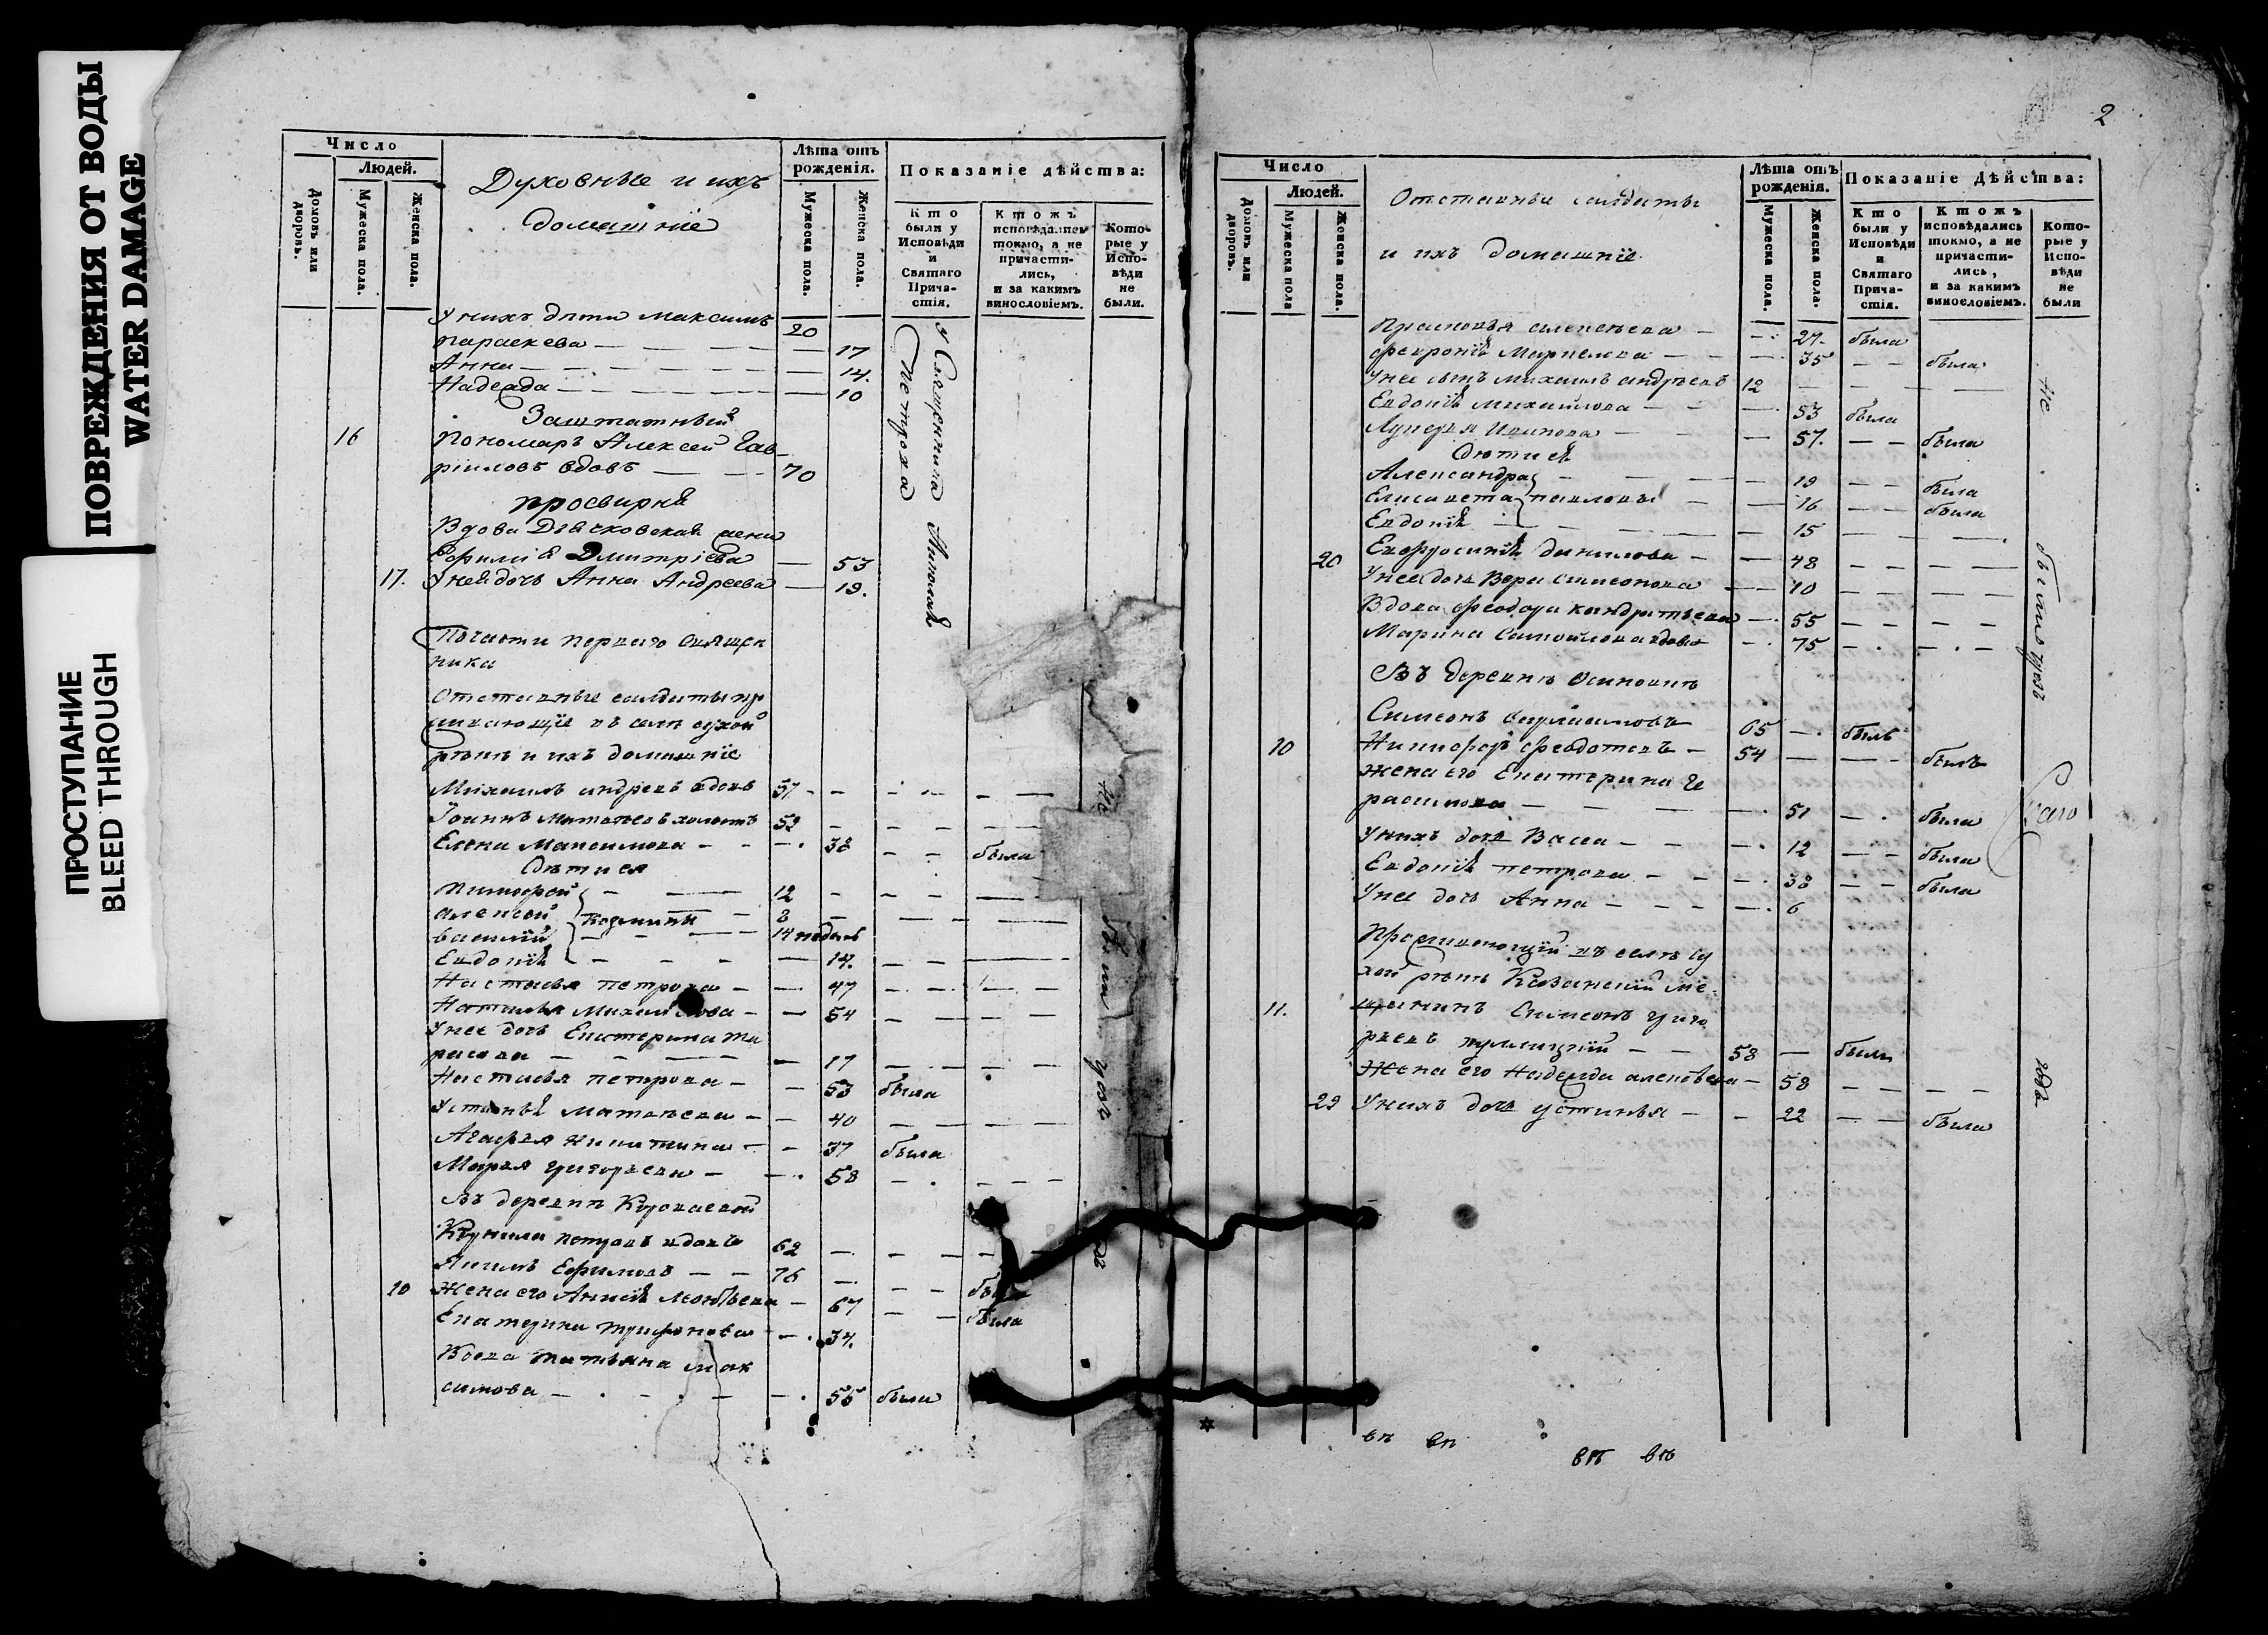 ПОВРЕЖДЕНИЯ ОТ ВОДЫ
WATER DAMAGE
ПРОСТУПАНИЕ
BLEED THROUGH
Число
Людей.
Домовъ или дворовъ.
Мужеска пола.
Женска пола.
Духовные и ихъ
домашніе
Лѣта отъ рожденія.
Мужеска пола.
Женска пола.
Показаніе дѣйства:
Кто были у Исповѣди и Святаго Причастія.
Ктожъ исповѣдались токмо, а не причастились, и за какимъ винословіемъ.
Которые у Исповѣди не были.
У нихъ дѣти Максимъ 20
параскева — 17
Анна — 14.
Надежда — 10
у Священника
Петрова
Заштатный
16 Пономарь Алексей Гав
ріиловъ вдовъ — 70
просвирня
Вдова Дьячковская жена
Ефимія Дмитріева — 53
17. У ней дочь Анна Андреева — 19.
Почасти перваго священ
ника
Отставные солдаты пр
живающіе въ селе сухой
рѣкѣ и ихъ домашніе
Михаилъ андреевъ вдовъ 57
Іоаннъ Матвѣевъ холостъ 52
Елена Максимова — 38 — была
Дѣти ея
Никифоръ — 12
алексей } Козмины — 8
василій — 14 недель
Евдокія — 14.
Настасья петрова — 47
Наталья Михайлова — 54
У нее дочь Екатерина Та
расова — 17
Настасья Петрова — 53 была
Устинья Матвѣева — 40
Агафья Никитина — 37 была
Марья григорьева — 58
въ деревнѣ
Петровъ вдовъ 62
Якимъ Ефимовъ — 76
10 Жена его Анисія Леонтьева — 67 — была
Екатерина Трифонова — 34.
Вдова Татьяна Мак
симова — 55 была
2
Число
Людей.
Домовъ или дворовъ.
Мужеска пола
Женска пола.
Отставные солдаты
и ихъ домашніе.
Лѣта отъ рожденія.
Мужеска пола.
Женска пола.
Показаніе Дѣйства:
Кто были у Исповѣди и Святаго Причастія.
Ктожъ исповѣдались токмо, а не причастились, и за какимъ винословіемъ.
Которые у Исповѣди не были
Прасковья алексеева — 27. была
Февронія Маркелова — 35 — была
У нее сынъ михаилъ андреевъ 12
Евдокія Михайлова — 53 была
Лукерья Иванова — 57. — была
Дѣти ея
Александра — 19 — была
Елисавета } павловы — 16 — была
Евдокія — 15
20 Евфросинія данилова — 48
У нее дочь Вера симеонова — 10
Вдова феодора кондратьева — 55
Марина Самойлова вдова — 75
Въ деревнѣ Осиновке
Симеонъ 65 — былъ
10 Никифоръ феодотовъ — 54 — былъ
жена его Екатерина Ге
расимова — 51 — была
У нихъ дочь Васса — 12 — была
Евдокія петрова — 38 — была
У нее дочь Анна — 6
не были чрезъ
годъ
Проживающій въ селѣ Су
хой рѣкѣ Казанскій ме
11. щанинъ Симеонъ григо
рьевъ — 58 — былъ
Жена его Надежда алексѣева — 58
22 У нихъ дочь устинья — 22 — была
вп вп
вп вп